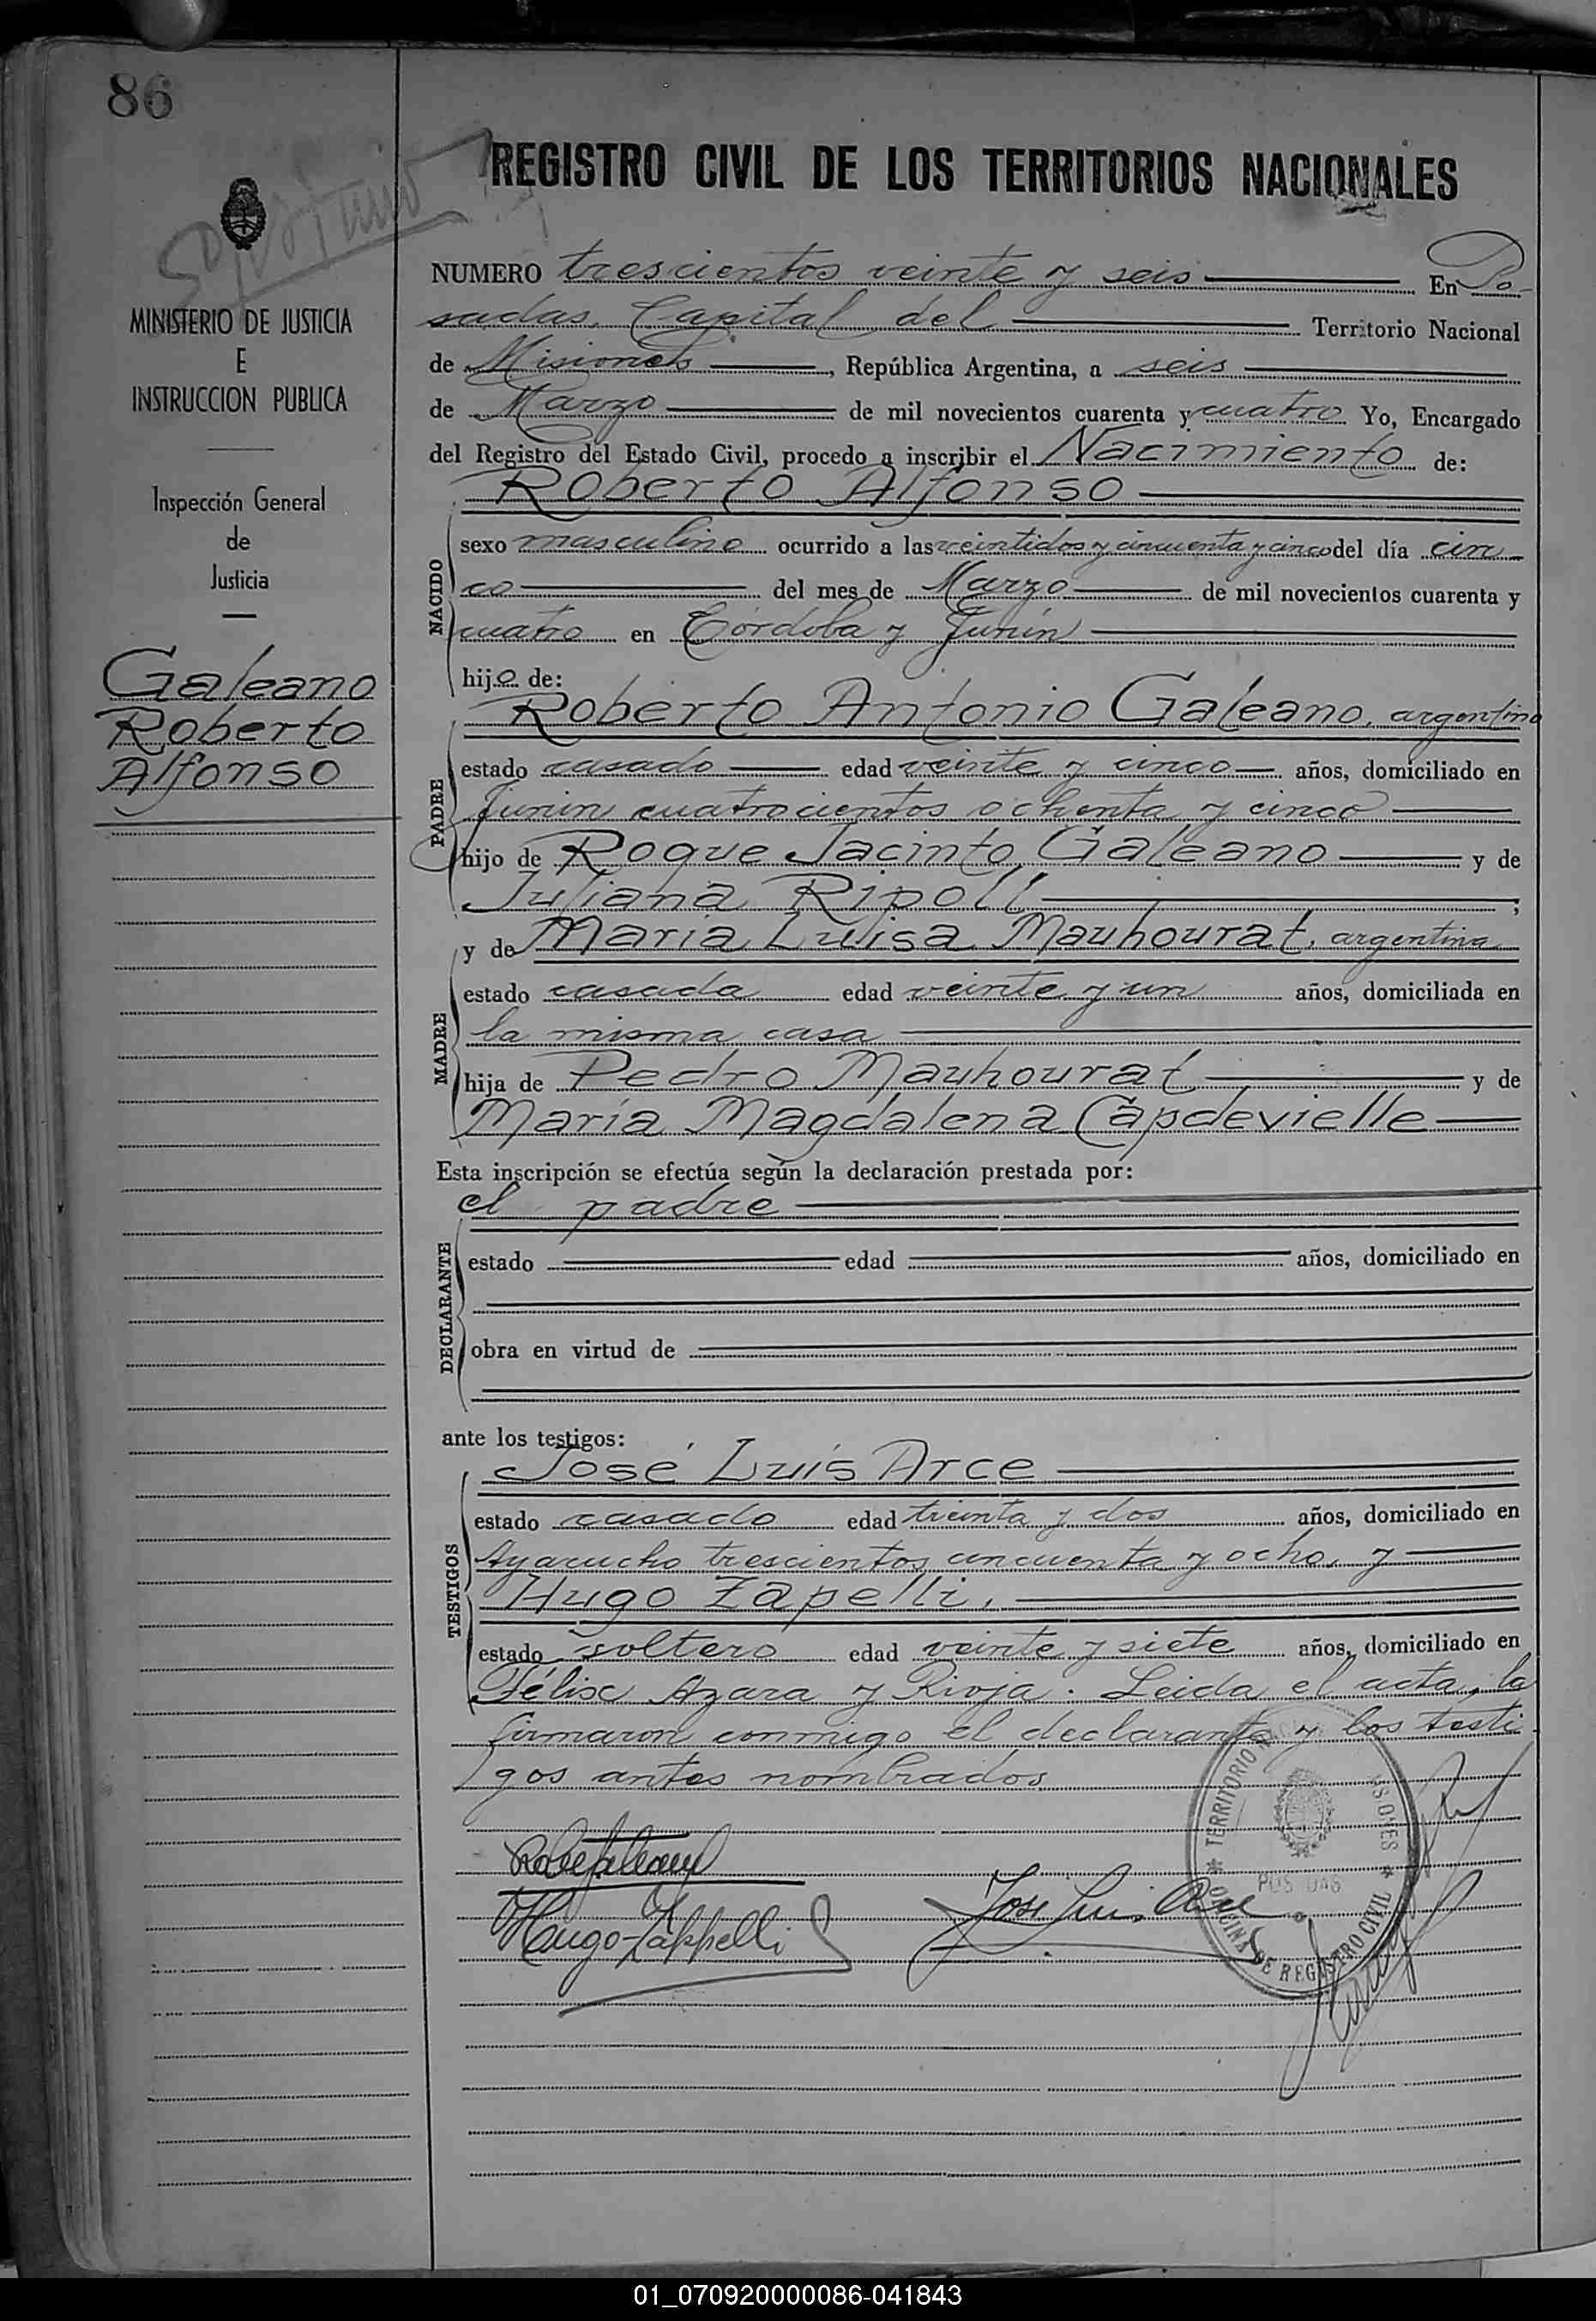 86
REGISTRO CIVIL DE LOS TERRITORIOS NACIONALES
MINISTERIO DE JUSTICIA
E
INSTRUCCION PUBLICA
Inspección General
de
Justicia
Galeano
Roberto
Alfonso
NUMERO trescientos veinte y seis En Po-
sadas, Capital del Territorio Nacional
de Misiones, República Argentina, a seis
de Marzo de mil novecientos cuarenta y cuatro Yo, Encargado
del Registro del Estado Civil, procedo a inscribir el Nacimiento de:
Roberto Alfonso
NACIDO
sexo masculino ocurrido a las veintidos y cincuenta y cinco del día cin
co del mes de Marzo de mil novecientos cuarenta y
cuatro en Córdoba y Junín
hijo de:
Roberto Antonio Galeano, argentino
PADRE
estado casado edad veinte y cinco años, domiciliado en
Junin cuatrocientos ochenta y cinco
hijo de Roque Jacinto Galeano y de
Juliana Ripoll;
y de María Luisa Mauhourat, argentina
MADRE
estado casada edad veinte y un años, domiciliada en
la misma casa
hija de Pedro Mauhourat y de
María Magdalena Capdevielle
Esta inscripción se efectúa según la declaración prestada por:
el padre
DECLARANTE
estado edad años, domiciliado en
obra en virtud de
ante los testigos:
José Luis Arce
TESTIGOS
estado casado edad treinta y dos años, domiciliado en
Ayacucho trescientos cincuenta y ocho, y
Hugo Zapelli,
estado soltero edad veinte y siete años, domiciliado en
Félix Azara y Rioja. Leida el acta, la
firmaron conmigo el declarante y los testi
gos antes nombrados
TERRITORIO
MISIONES
POSADAS
OFICINA DE REGISTRO CIVIL
Hugo Zappelli
Jose Luis Arce
01_070920000086-041843